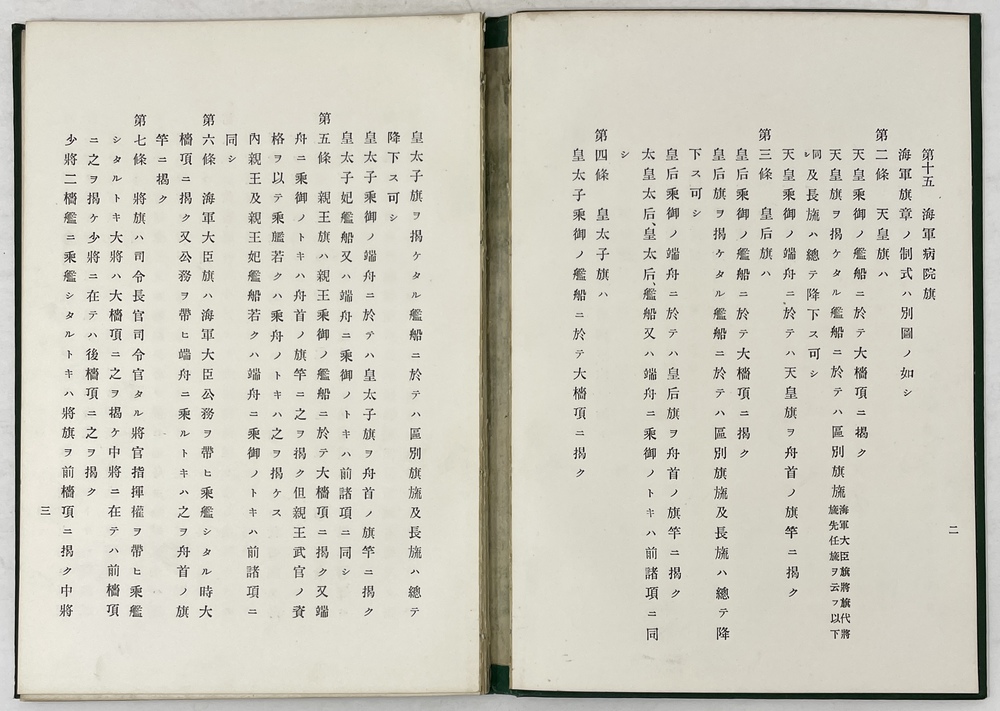 二
第十五　海軍病院旗
海軍旗章ノ制式ハ別圖ノ如シ
第二條　天皇旗ハ
天皇乘御ノ艦船ニ於テ大檣項ニ揭ク
天皇旗ヲ揭ケタル艦船ニ於テハ區別旗旒海軍大臣旗將旗代將
旒先任旒ヲ云フ以下
同シ及長旒ハ總テ降下ス可シ
天皇乘御ノ端舟ニ於テハ天皇旗ヲ舟首ノ旗竿ニ揭ク
第三條　皇后旗ハ
皇后乘御ノ艦船ニ於テ大檣項ニ揭ク
皇后旗ヲ揭ケタル艦船ニ於テハ區別旗旒及長旒ハ總テ降
下ス可シ
皇后乘御ノ端舟ニ於テハ皇后旗ヲ舟首ノ旗竿ニ揭ク
太皇太后、皇太后、艦船又ハ端舟ニ乘御ノトキハ前諸項ニ同
シ
第四條　皇太子旗ハ
皇太子乘御ノ艦船ニ於テ大檣項ニ揭ク
皇太子旗ヲ揭ケタル艦船ニ於テハ區別旗旒及長旒ハ總テ
降下ス可シ
皇太子乘御ノ端舟ニ於テハ皇太子旗ヲ舟首ノ旗竿ニ揭ク
皇太子妃艦船又ハ端舟ニ乘御ノトキハ前諸項ニ同シ
第五條　親王旗ハ親王乘御ノ艦船ニ於テ大檣項ニ揭ク又端
舟ニ乘御ノトキハ舟首ノ旗竿ニ之ヲ揭ク但親王武官ノ資
格ヲ以テ乘艦若クハ乘舟ノトキハ之ヲ揭ケス
內親王及親王妃艦船若クハ端舟ニ乘御ノトキハ前諸項ニ
同シ
第六條　海軍大臣旗ハ海軍大臣公務ヲ帶ヒ乘艦シタル時大
檣項ニ揭ク又公務ヲ帶ヒ端舟ニ乘ルトキハ之ヲ舟首ノ旗
竿ニ揭ク
第七條　將旗ハ司令長官司令官タル將官指揮權ヲ帶ヒ乘艦
シタルトキ大將ハ大檣項ニ之ヲ揭ケ中將ニ在テハ前檣項
ニ之ヲ揭ケ少將ニ在テハ後檣項ニ之ヲ揭ク
少將二檣艦ニ乘艦シタルトキハ將旗ヲ前檣項ニ揭ク中將
三